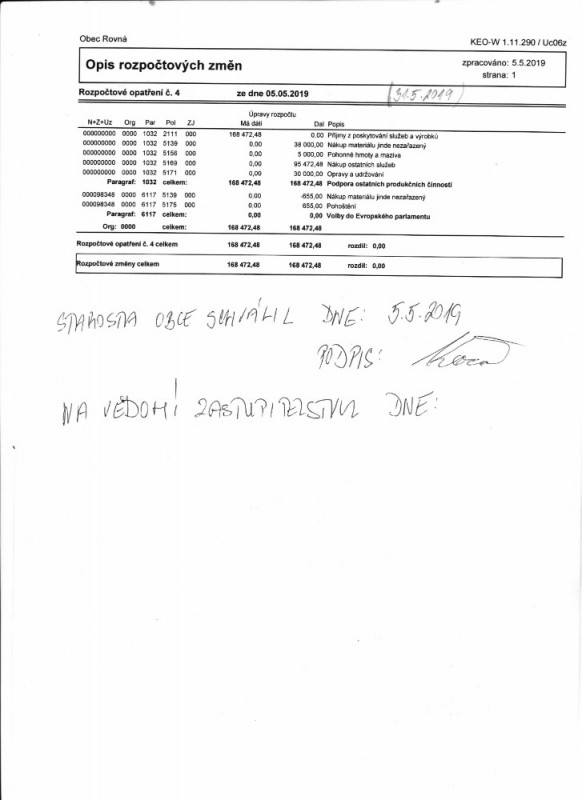 Obec Rovná
KEO-W 1.11.290 / Uc06z
Opis rozpočtových změn
zpracováno: 5.5.2019
strana: 1
Rozpočtové opatření č. 4 ze dne 05.05.2019 (31.5.2019)
Úpravy rozpočtu
N+Z+Uz Org Par Pol ZJ Má dáti Dal Popis
000000000 0000 1032 2111 000 168 472,48 0,00 Příjmy z poskytování služeb a výrobků
000000000 0000 1032 5139 000 0,00 38 000,00 Nákup materiálu jinde nezařazený
000000000 0000 1032 5156 000 0,00 5 000,00 Pohonné hmoty a maziva
000000000 0000 1032 5169 000 0,00 95 472,48 Nákup ostatních služeb
000000000 0000 1032 5171 000 0,00 30 000,00 Opravy a udržování
Paragraf: 1032 celkem: 168 472,48 168 472,48 Podpora ostatních produkčních činností
000098348 0000 6117 5139 000 0,00 -655,00 Nákup materiálu jinde nezařazený
000098348 0000 6117 5175 000 0,00 655,00 Pohoštění
Paragraf: 6117 celkem: 0,00 0,00 Volby do Evropského parlamentu
Org: 0000 celkem: 168 472,48 168 472,48
Rozpočtové opatření č. 4 celkem 168 472,48 168 472,48 rozdíl: 0,00
Rozpočtové změny celkem 168 472,48 168 472,48 rozdíl: 0,00
STAROSTA OBCE SCHVÁLIL DNE: 5.5.2019
PODPIS:
NA VĚDOMÍ ZASTUPITELSTVU DNE: